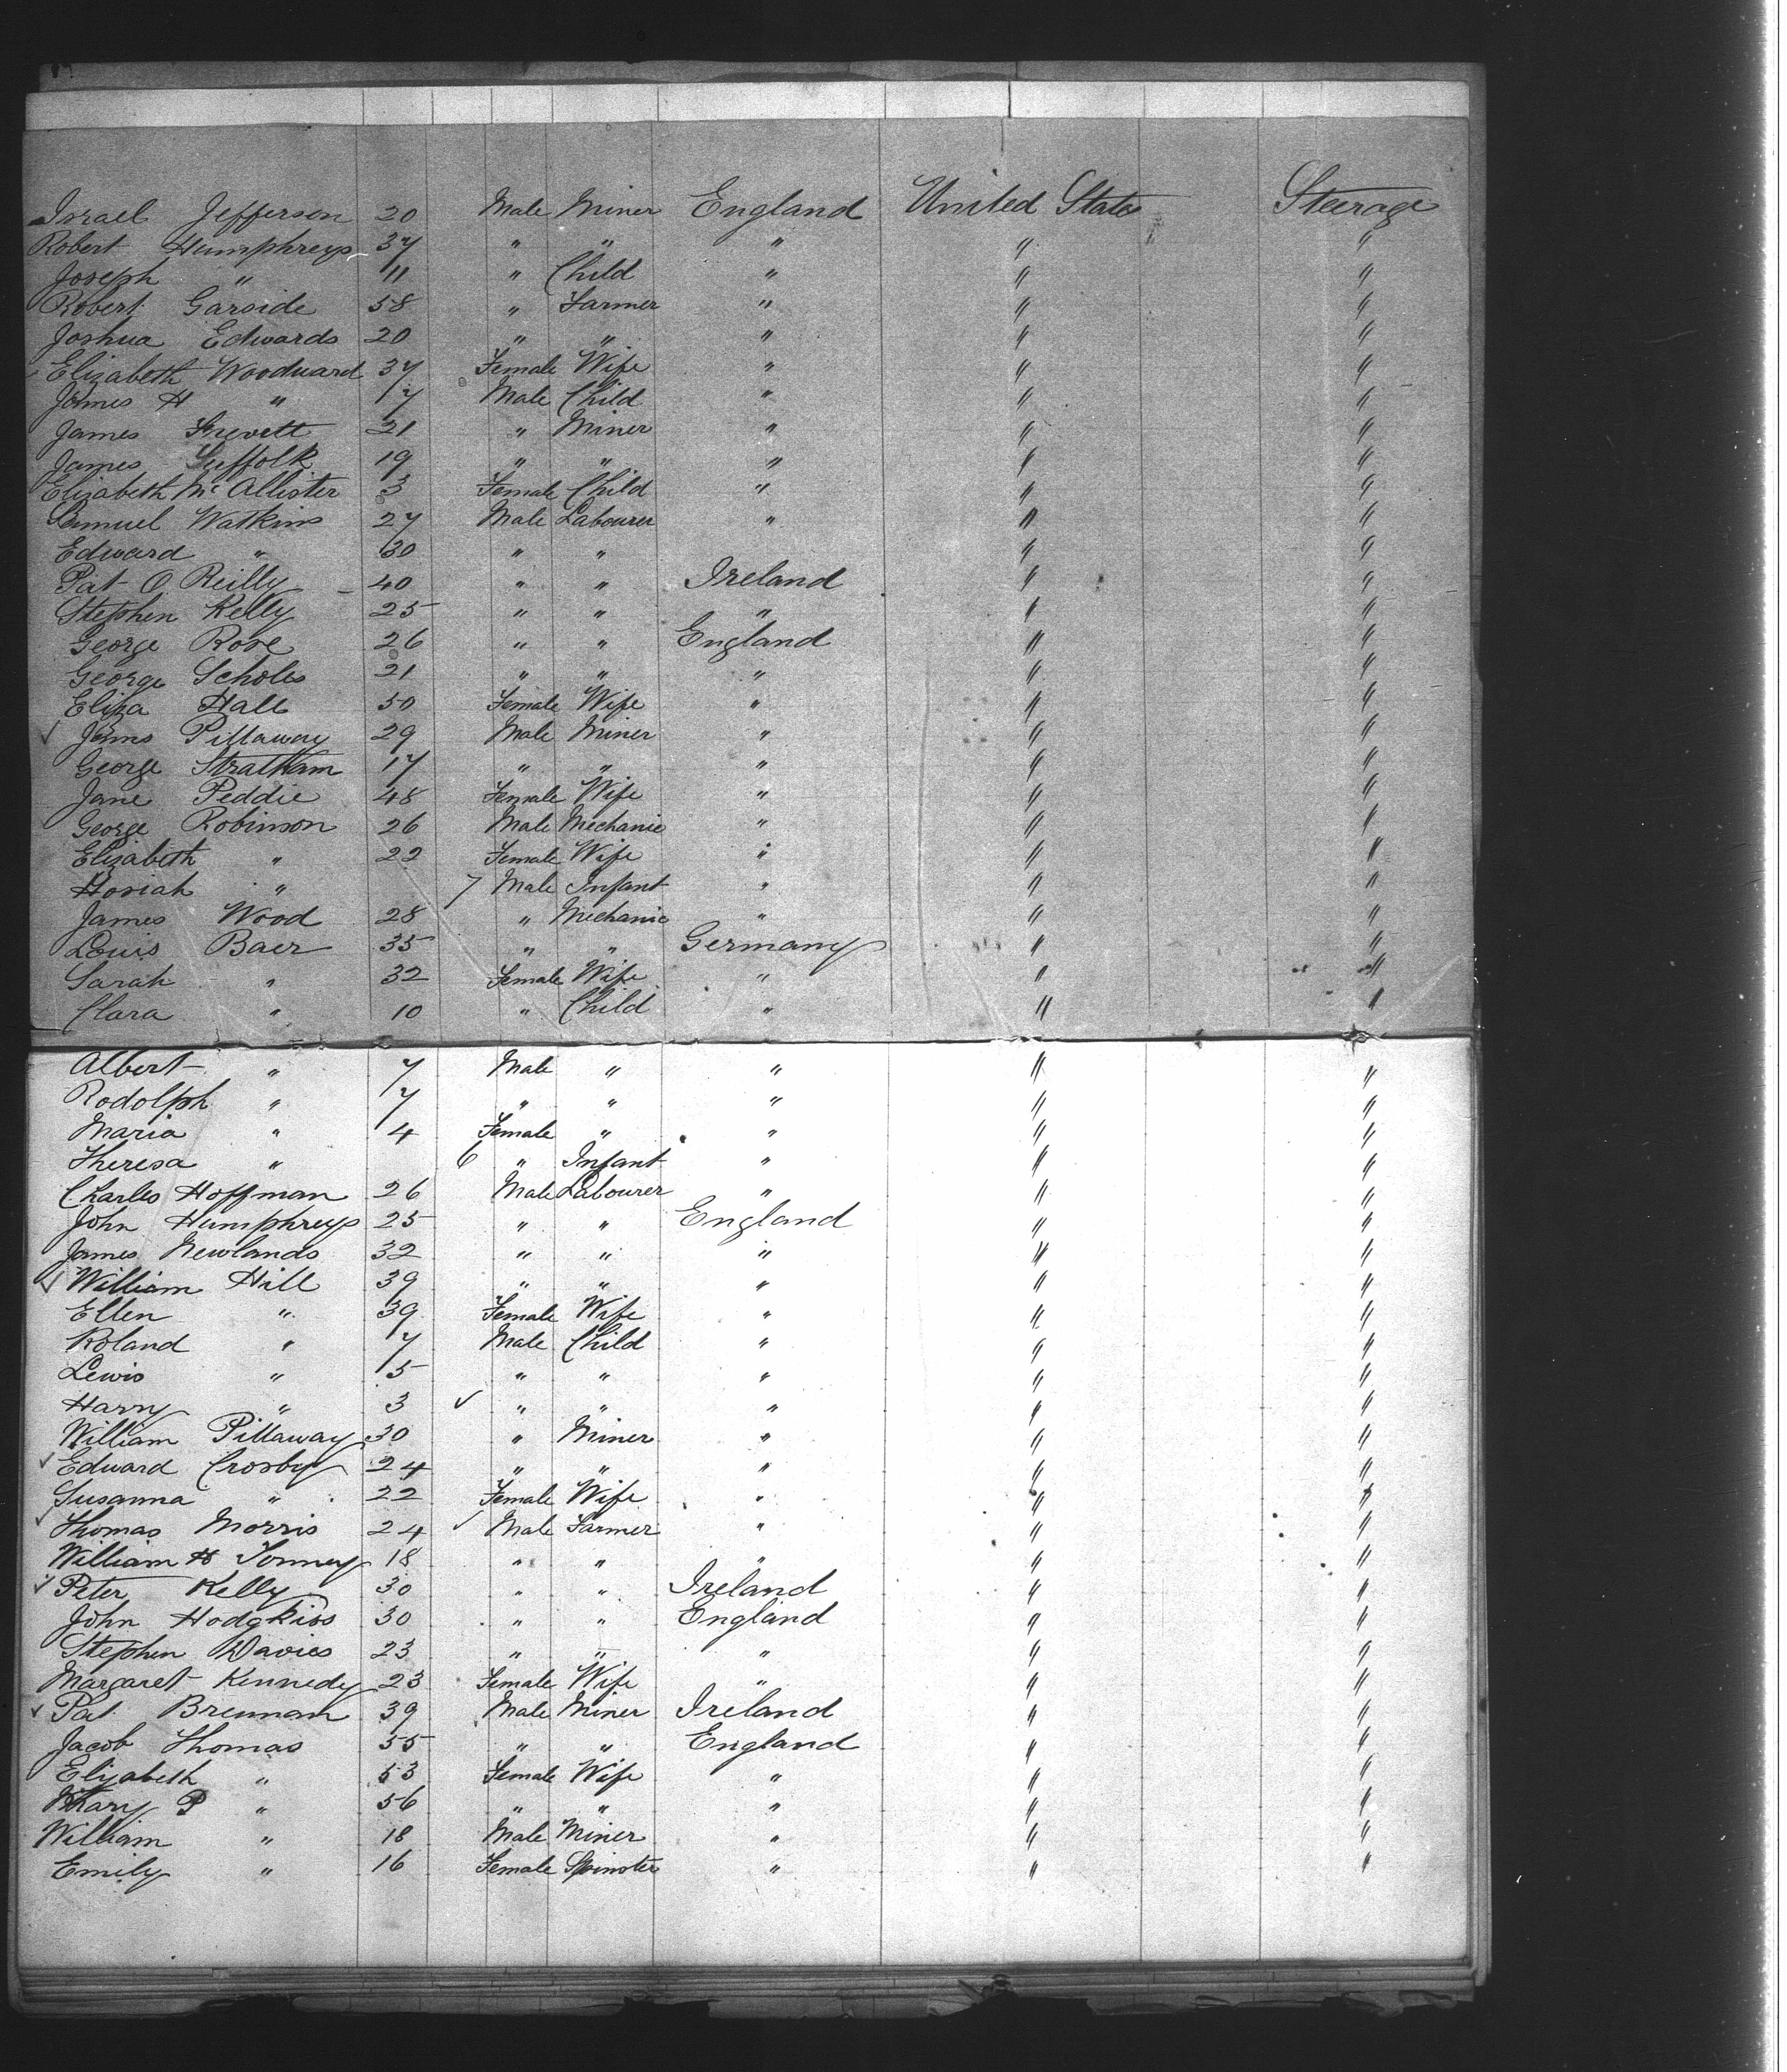 Israel Jefferson 20 Male Miner England United States Steerage
Robert Humphreys 37 " " " " "
Joseph " 11 " Child " " "
Robert Garside 58 " Farmer " " "
Joshua Edwards 20 " " " " "
Elizabeth Woodward 37 Female Wife " " "
James H " 7 Male Child " " "
James Trevett 21 " Miner " " "
James Suffolk 19 " " " " "
Elizabeth McAllister 3 Female Child " " "
Samuel Watkins 27 Male Labourer " " "
Edward " 30 " " " " "
Pat O Reilly 40 " " Ireland " "
Stephen Kelly 25 " " " " "
George Rose 26 " " England " "
George Scholes 21 " " " " "
Eliza Hall 50 Female Wife " " "
✓ James Pillaway 29 Male Miner " " "
George Stratham 17 " " " " "
Jane Peddie 48 Female Wife " " "
George Robinson 26 Male Mechanic " " "
Elizabeth " 22 Female Wife " " "
Hosiah " 7 Male Infant " " "
James Wood 28 " Mechanic " " "
Louis Baer 35 " " Germany " "
Sarah " 32 Female Wife " " "
Clara " 10 " Child " " "
Albert " 7 Male " " " "
Rodolph " 7 " " " " "
Maria " 4 Female " " " "
Theresa " 6 " Infant " " "
Charles Hoffman 26 Male Labourer " " "
John Humphreys 25 " " England " "
James Newlands 32 " " " " "
✓ William Hill 39 " " " " "
Ellen " 39 Female Wife " " "
Roland " 7 Male Child " " "
Lewis " 5 " " " " "
Harry " 3 ✓ " " " " "
William Pillaway 30 " Miner " " "
✓ Edward Crosby 24 " " " " "
Susanna " 22 Female Wife " " "
✓ Thomas Morris 24 ✓ Male Farmer " " "
William H 18 " " " " "
✓ Peter Kelly 30 " " Ireland " "
John Hodgkiss 30 " " England " "
Stephen Davies 23 " " " " "
Margaret Kennedy 23 Female Wife " " "
✓ Pat Brennan 39 Male Miner Ireland " "
Jacob Thomas 55 " " England " "
Elizabeth " 53 Female Wife " " "
Mary P " 56 " " " " "
William " 18 Male Miner " " "
Emily " 16 Female Spinster " " "